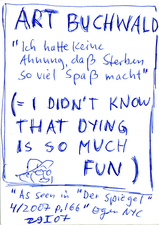 ART BUCHWALD
"Ich hatte keine
Ahnung, daß Sterben
so viel Spaß macht"
(= I DIDN'T KNOW
THAT DYING
IS SO MUCH
FUN )
"As seen in "Der Spiegel"
4/2007 p.166" NYC
29 I 07